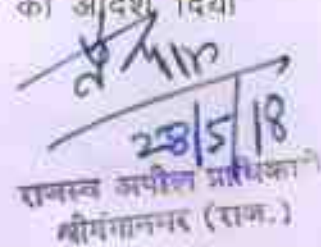 का आदेश दिया
28/5/18
राजस्व अपील प्राधिकारी
श्रीगंगानगर (राज.)